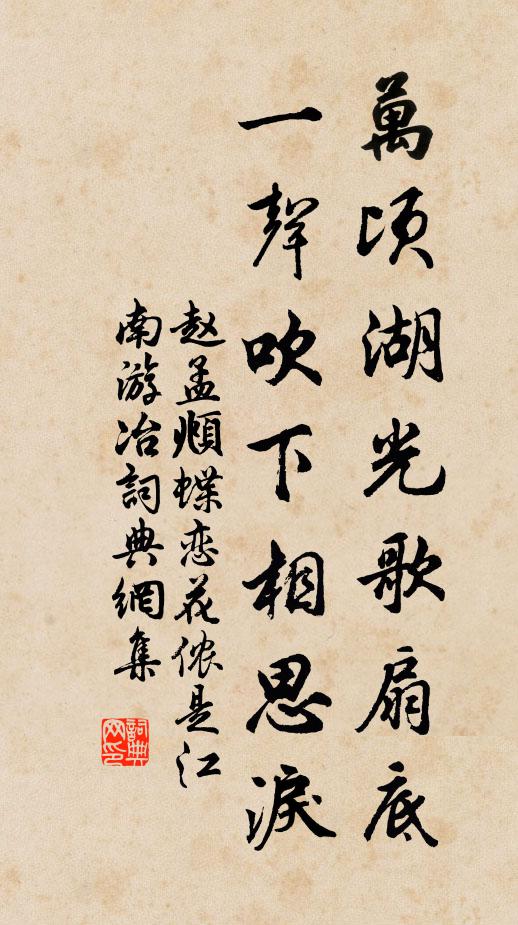 萬頃湖光歌扇底
一聲吹下相思淚
赵孟頫蝶恋花侬是江
南游冶詞典網集
詞典网印